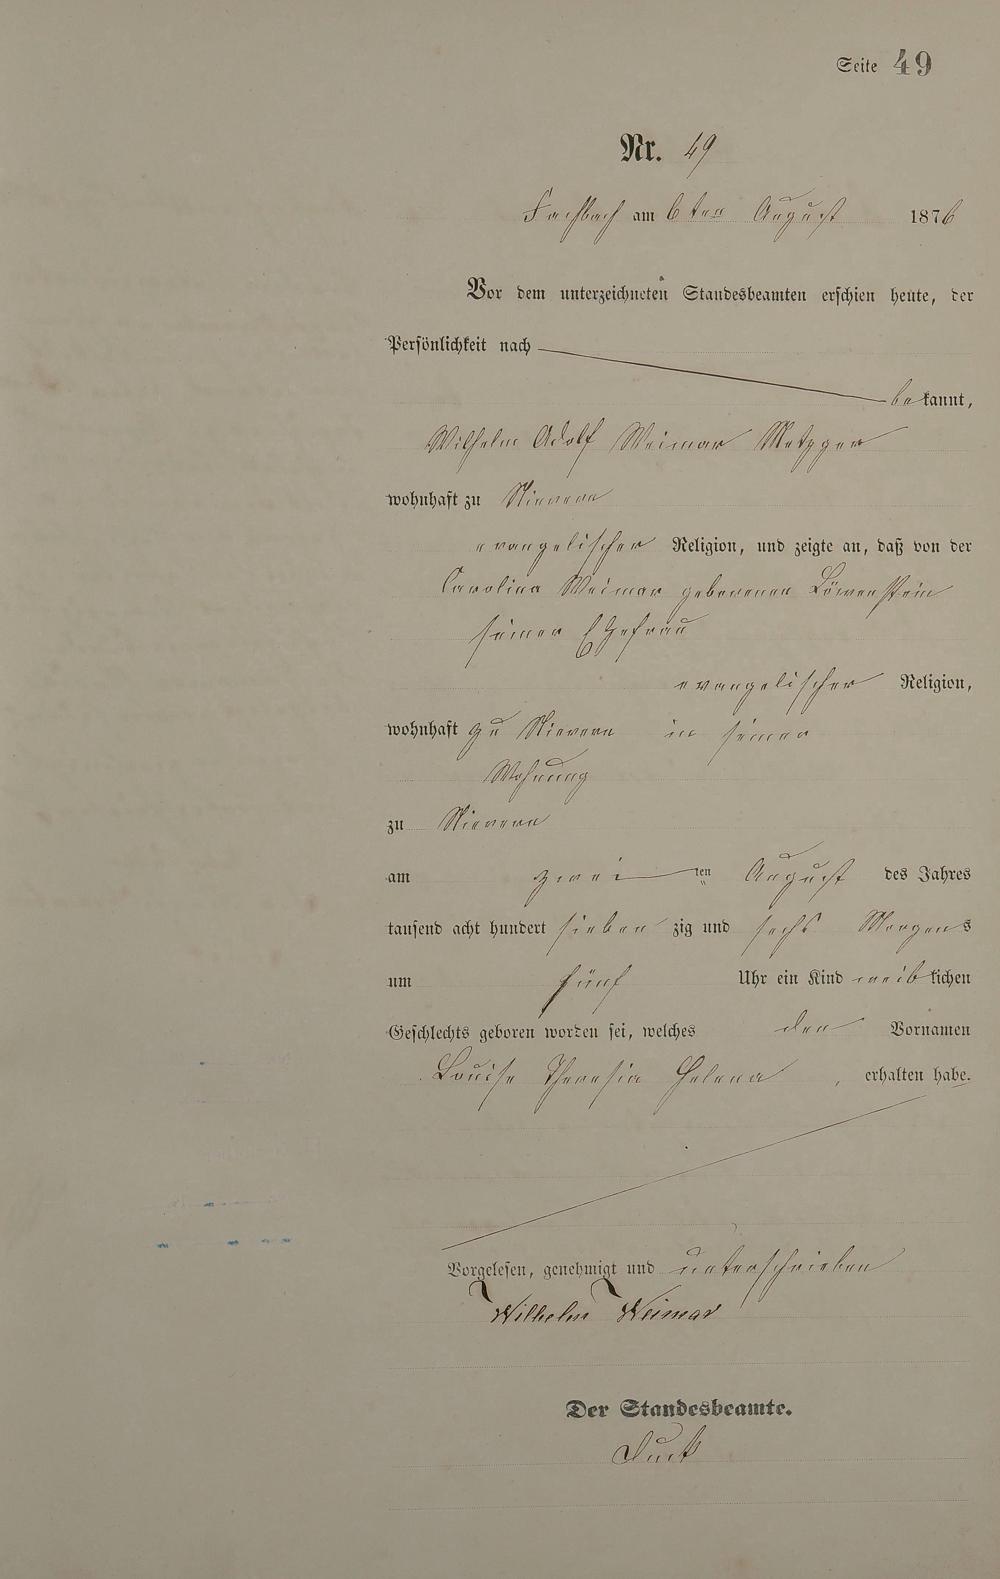 Seite 49
Nr. 49
Fachbach am 6ten August 1876
Vor dem unterzeichneten Standesbeamten erschien heute, der
Persönlichkeit nach
bekannt,
Wilhelm Adolf Weimar Metzger
wohnhaft zu Nievern
evangelischer Religion, und zeigte an, daß von der
Carolina Weimar geborenen Löwenstein
seiner Ehefrau
evangelischer Religion,
wohnhaft zu Nievern in seiner
Wohnung
zu Nievern
am zwei ten August des Jahres
tausend acht hundert sieben zig und sechs Morgens
um fünf Uhr ein Kind weiblichen
Geschlechts geboren worden sei, welches den Vornamen
Louise Theresia Helena , erhalten habe.
Vorgelesen, genehmigt und unterschrieben
Wilhelm Weimar
Der Standesbeamte.